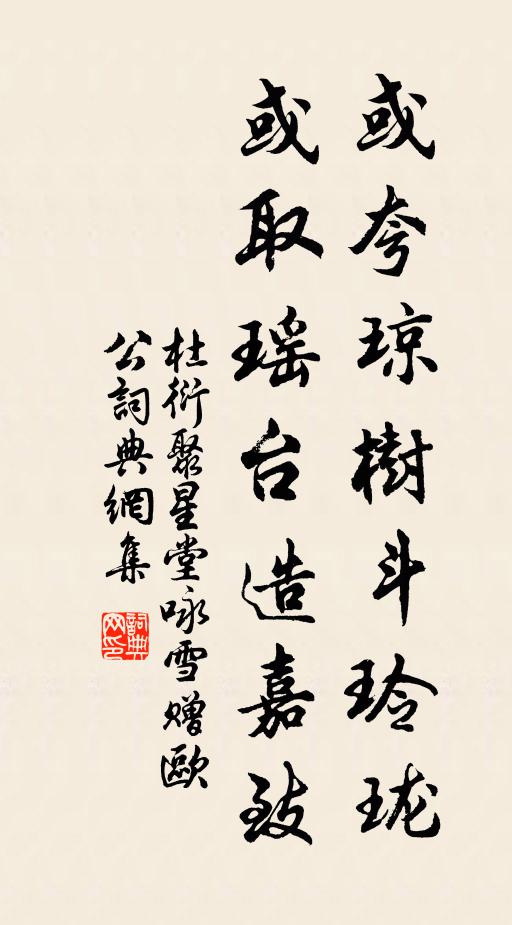 或夸琼樹斗玲珑
或取瑶台造嘉致
杜衍聚星堂咏雪赠歐
公詞典網集
詞典
网印